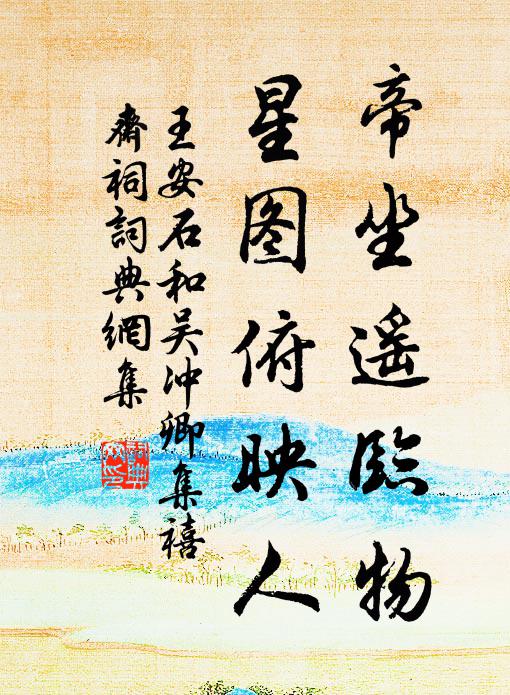 帝坐遥臨物
星图俯映人
王安石和吴冲卿集禧
齋祠詞典網集